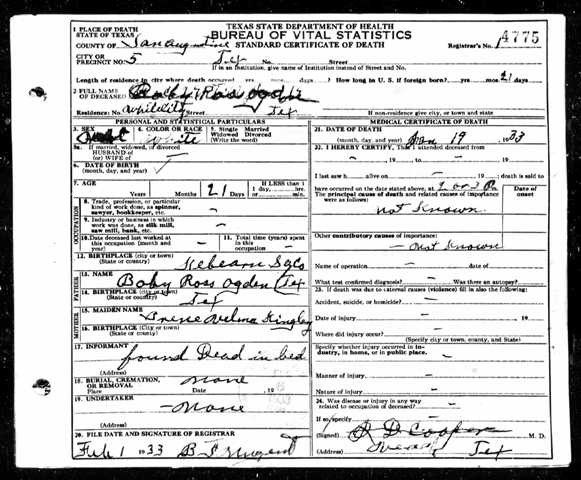 TEXAS STATE DEPARTMENT OF HEALTH
BUREAU OF VITAL STATISTICS
STANDARD CERTIFICATE OF DEATH
4775
Registrar's No. 1
1 PLACE OF DEATH
STATE OF TEXAS
COUNTY OF San Augustine
CITY OR
PRECINCT NO. 5 Tex No. Street
If in an Institution, give name of Institution instead of Street and No.
Length of residence in city where death occurred yrs. mos. days? How long in U. S. if foreign born? yrs. mos. 21 days
2 FULL NAME
OF DECEASED Ross Ogden
Residence: No. Street Tex
If non-residence give city, or town and state
PERSONAL AND STATISTICAL PARTICULARS
3. SEX
4. COLOR OR RACE
White
5. Single Married
Widowed Divorced
(Write the word)
5a. If married, widowed, or divorced
HUSBAND OF
(or) WIFE OF
6. DATE OF BIRTH
(month, day, and year)
7. AGE
Years Months 21 Days
IF LESS than 1
1 day, hrs.
or min.
OCCUPATION
8. Trade, profession, or particular
kind of work done, as spinner,
sawyer, bookkeeper, etc. -
9. Industry or business in which
work was done, as silk mill,
saw mill, bank, etc. -
10. Date deceased last worked at
this occupation (month and
year) -
11. Total time (years) spent
in this
occupation -
12. BIRTHPLACE (city or town)
(State or country)
FATHER
13. NAME
Boby Ross Ogden
14. BIRTHPLACE (city or town)
(State or country) Tex
Tex
MOTHER
15. MAIDEN NAME
Irene Velma
16. BIRTHPLACE (City or town)
(State or country)
17. INFORMANT
found Dead in bed
(Address)
18. BURIAL, CREMATION,
OR REMOVAL none
Place Date , 19
19. UNDERTAKER
- None
(Address)
20. FILE DATE AND SIGNATURE OF REGISTRAR
Feb 1 1933
MEDICAL CERTIFICATE OF DEATH
21. DATE OF DEATH
(month, day, and year) Jan 19 1933
22. I HEREBY CERTIFY, That I attended deceased from
- , 19 to - , 19
I last saw h alive on - , 19 ; death is said to
have occurred on the date stated above, at m.
The principal cause of death and related causes of importance
were as follows:
Date of
onset
not Known
Other contributory causes of importance:
- not Known
Name of operation - date of
What test confirmed diagnosis? - Was there an autopsy? -
23. If death was due to external causes (violence) fill in also the following:
Accident, suicide, or homicide? -
Date of injury - , 19
Where did injury occur? -
(Specify city or town, county, and State)
Specify whether injury occurred in industry, in home, or in public place -
Manner of injury -
Nature of injury -
24. Was disease or injury in any way
related to occupation of deceased? -
If so, specify -
(Signed) Cooper M. D.
(Address) Tex